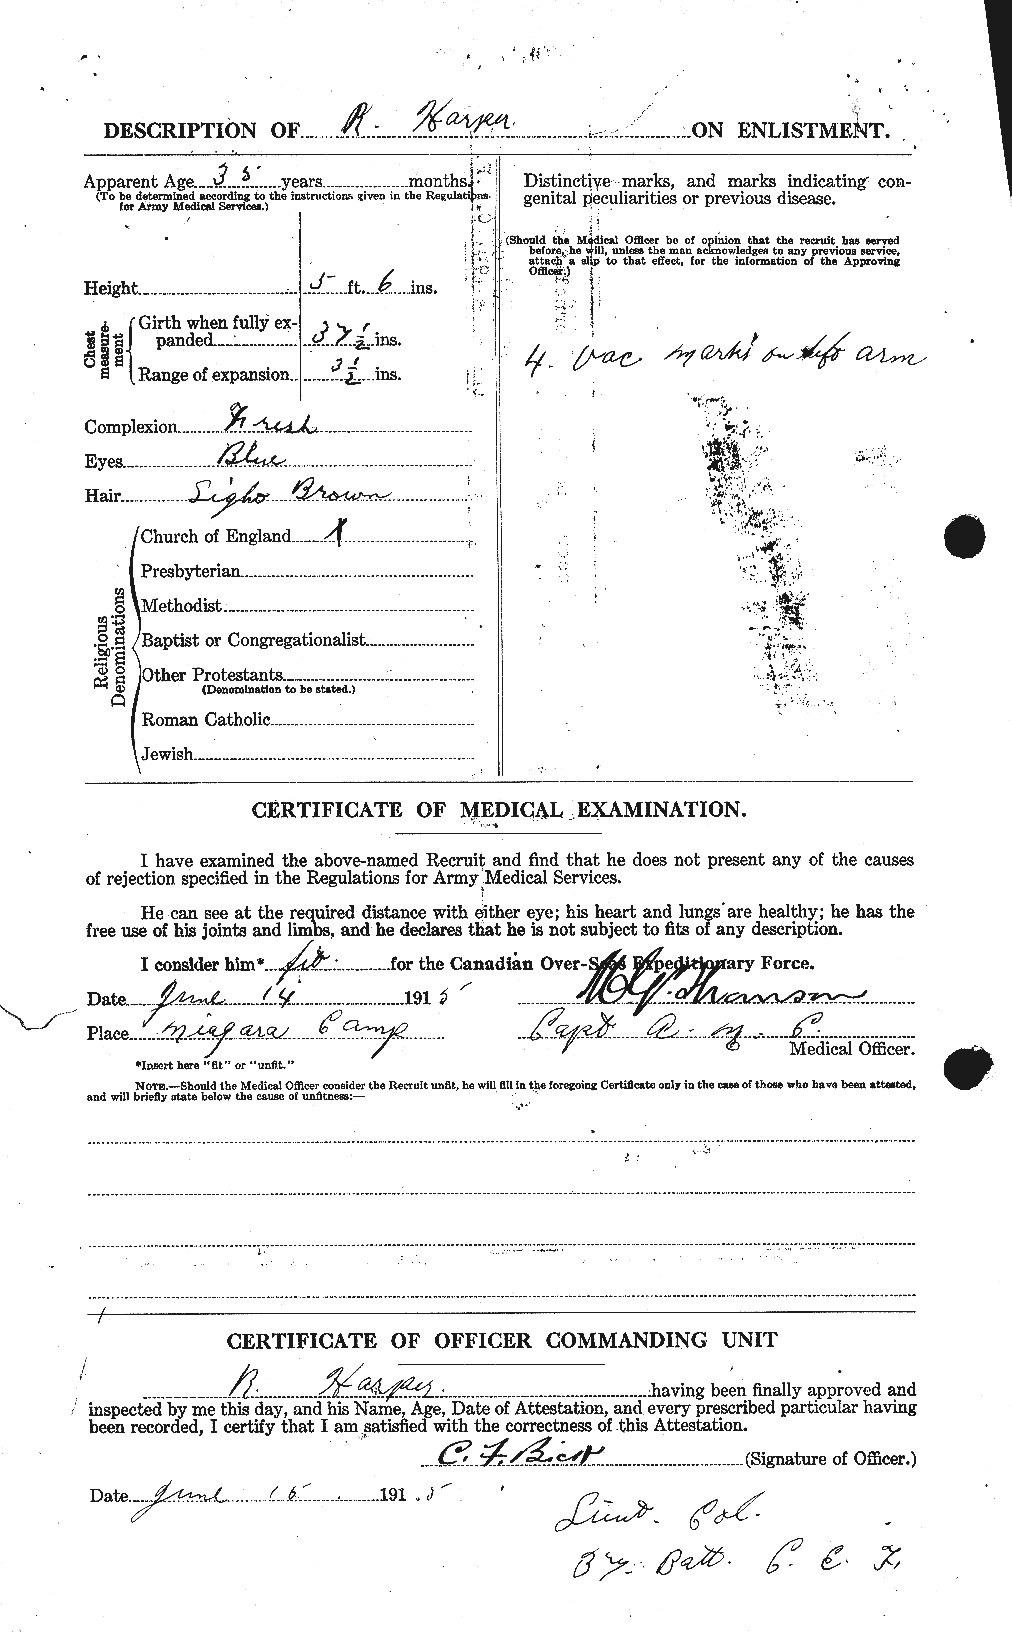 DESCRIPTION OF R. Harper ON ENLISTMENT.
Apparent Age 35 years months.
(To be determined according to the instructions given in the Regulations for Army Medical Services.)
Height 5 ft. 6 ins.
Chest measurement
Girth when fully expanded 37 1/2 ins.
Range of expansion 3 1/2 ins.
Complexion Fresh
Eyes Blue
Hair Light Brown
Religious Denominations
Church of England X
Presbyterian
Methodist
Baptist or Congregationalist
Other Protestants
(Denomination to be stated.)
Roman Catholic
Jewish
Distinctive marks, and marks indicating con-
genital peculiarities or previous disease.
(Should the Medical Officer be of opinion that the recruit has served
before, he will, unless the man acknowledges to any previous service,
attach a slip to that effect, for the information of the Approving
Officer.)
4. vac marks on left arm
CERTIFICATE OF MEDICAL EXAMINATION.
I have examined the above-named Recruit and find that he does not present any of the causes
of rejection specified in the Regulations for Army Medical Services.
He can see at the required distance with either eye; his heart and lungs are healthy; he has the
free use of his joints and limbs, and he declares that he is not subject to fits of any description.
I consider him* fit. for the Canadian Over-Seas Expeditionary Force.
Date June 14 1915
Place Niagara Camp Capt A. M. C.
Medical Officer.
*Insert here "fit" or "unfit."
NOTE.—Should the Medical Officer consider the Recruit unfit, he will fill in the foregoing Certificate only in the case of those who have been attested,
and will briefly state below the cause of unfitness:—
CERTIFICATE OF OFFICER COMMANDING UNIT
R. Harper. having been finally approved and
inspected by me this day, and his Name, Age, Date of Attestation, and every prescribed particular having
been recorded, I certify that I am satisfied with the correctness of this Attestation.
C. F. Bick (Signature of Officer.)
Date June 15 1915
Lieut. Col.
37 Batt. C. E. F.